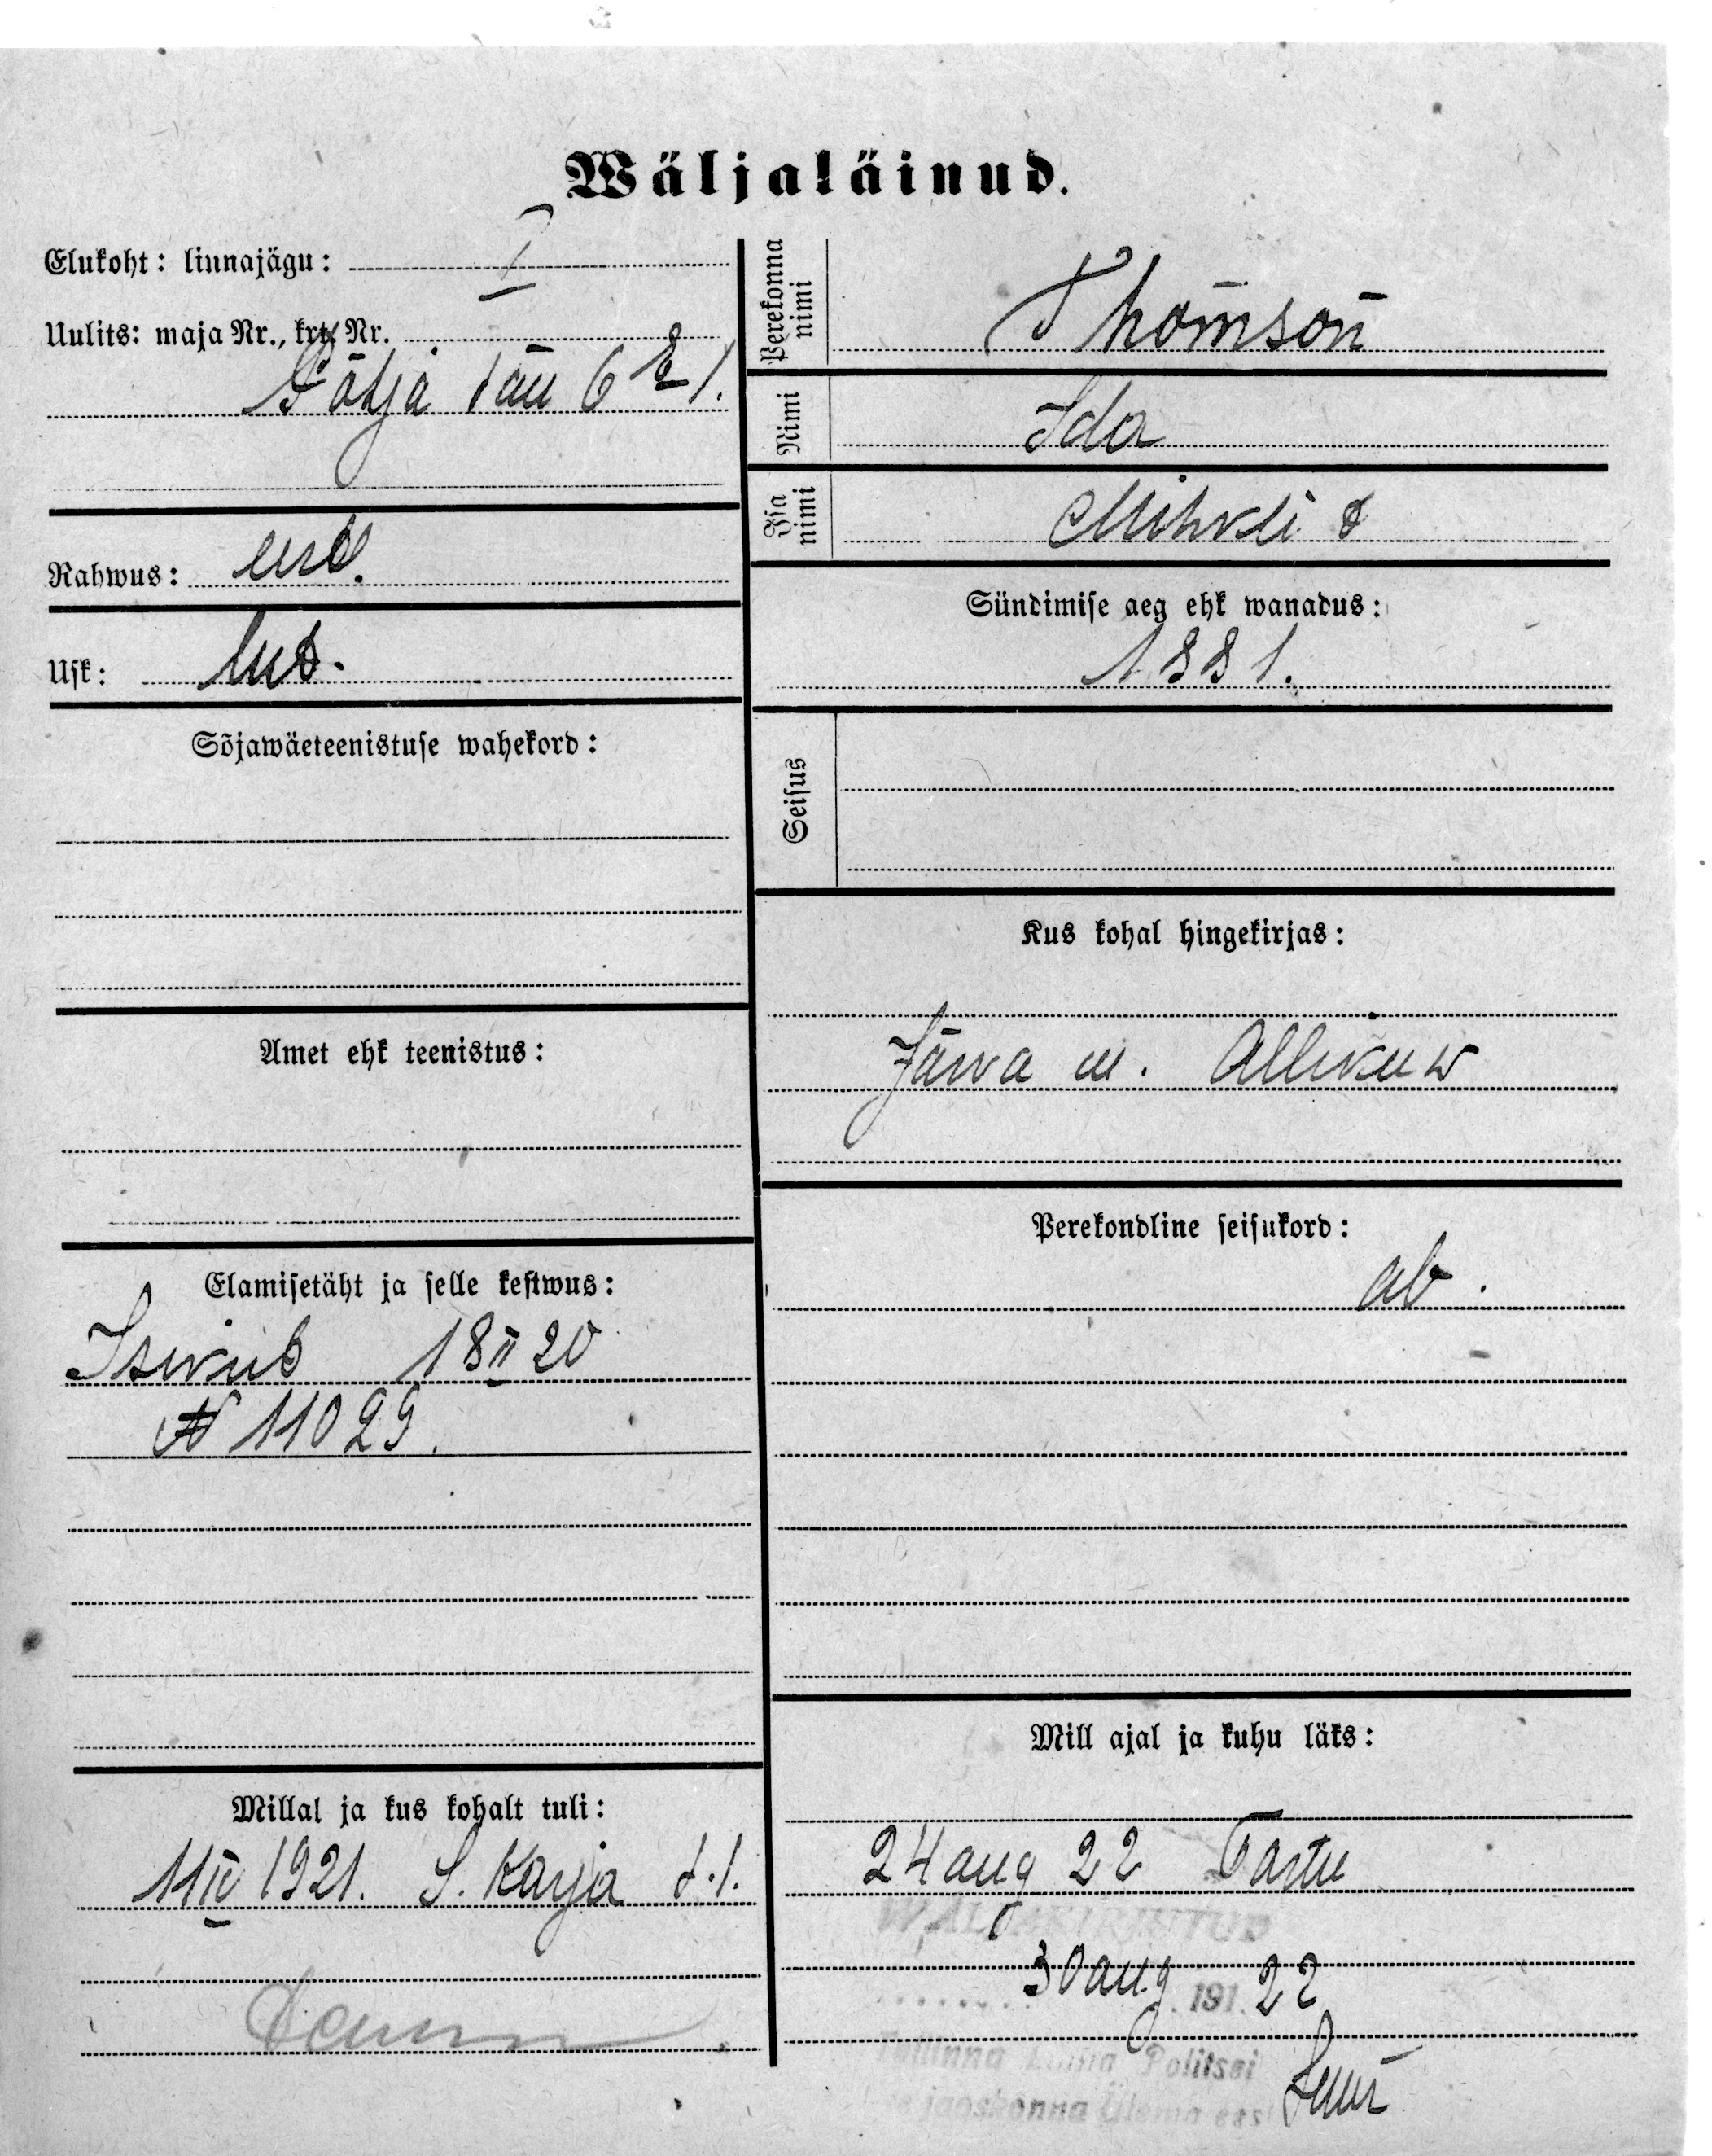 Wäljaläinud.
Elukoht: linnajägu: I
Uulits: maja Nr., krt. Nr.
tän 6 1.
Rahwus: eest.
Usk: lut.
Sõjawäeteenistuse wahekord:
Amet ehk teenistus:
Elamisetäht ja selle kestwus:
18 II 20
N 11029.
Millal ja kus kohalt tuli:
11 IV 1921. S. Karja t. 1.
Perekonna nimi
Thomson
Nimi
Ida
Isa nimi
Mihkli t
Sündimise aeg ehk wanadus:
1881.
Seisus
Kus kohal hingekirjas:
Järwa m. Allikuw
Perekondline seisukord:
ab.
Mill ajal ja kuhu läks:
24 aug 22 Tartu
WÄLJAKIRJUTUD
30 aug 191. 22
Tallinna Linna Politsei
jaoskonna Ülema